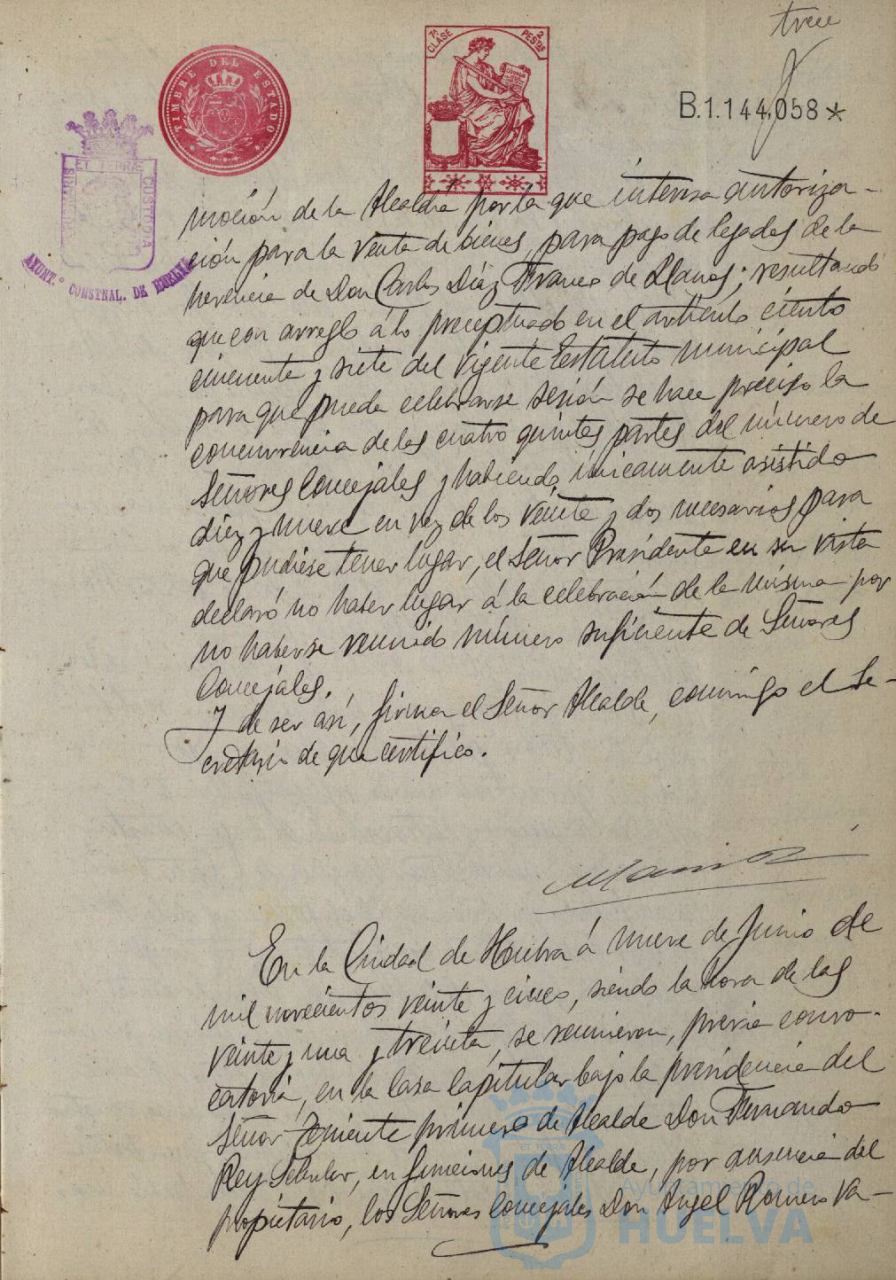 trece
TIMBRE DEL ESTADO
7ª CLASE 2 PESTAS
B.1.144,058*
PORTUS MARIS ET TERRÆ CUSTODIA
AYUNT.º CONSTNAL. DE HUELVA
moción de la Alcaldía por la que interesa autoriza-
ción para la venta de bienes, para pago de legados de la
herencia de Don Carlos Díaz Franco de Llanos; resultando
que con arreglo á lo preceptuado en el artículo ciento
cincuenta y siete del vigente Estatuto municipal
para que pueda celebrarse sesión se hace preciso la
concurrencia de las cuatro quintas partes del número de
Señores Concejales y habiendo únicamente asistido
diez y nueve en vez de los veinte y dos necesarios para
que pudiese tener lugar, el Señor Presidente en su vista
declaró no haber lugar á la celebración de la misma por
no haberse reunido número suficiente de Señores
Concejales.
Y de ser así, firma el Señor Alcalde, conmigo el Se-
cretario de que certifico.
En la Ciudad de Huelva á nueve de Junio de
mil novecientos veinte y cinco, siendo la hora de las
veinte y una y treinta, se reunieron, previa convo-
catoria, en la Casa Capitular bajo la presidencia del
Señor Teniente primero de Alcalde Don Fernando
Rey, en funciones de Alcalde, por ausencia del
propietario, los Señores Concejales Don Angel Romero Va-
Ayuntamiento de
HUELVA